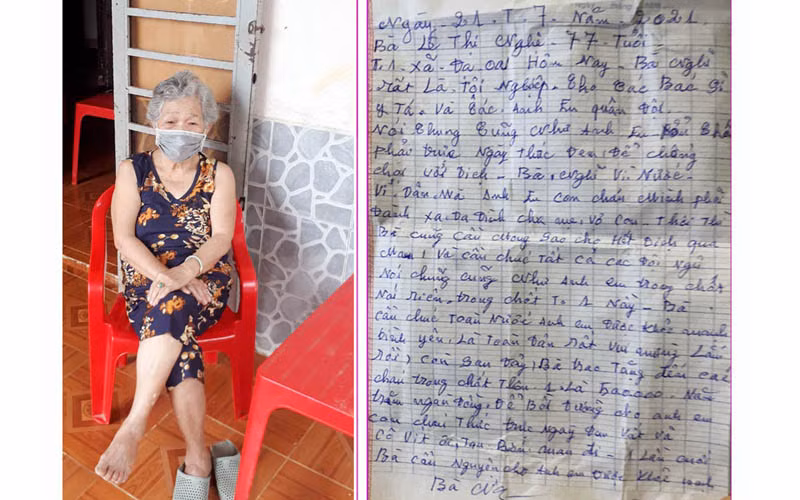 Ngày. 21. T. 7. Năm. 2021.
Bà Lê Thị Nghê - 77 - Tuổi -
T.1. Xã. Đạ Oai Hôm Nay - Bà Nghĩ
Rất Là Tội Nghiệp. Cho Các Bác Sĩ
Y Tá. Và Các. Anh Em quân Đội.
Nói Chung Cũng Như Anh Em
phải Đưic Ngày Thức Đem. Để chống
chọi Với Dịch - Bà, Nghĩ Vì Nước -
Vì Dân. Mà Anh Em con cháu Mình phải
Đành Xa Da Đình cha mẹ, Vỏ Con Thôi Thì
Bà cũng Cầu Mong Sao cho Hết Dịch qua
Mau, Và Cầu chúc Tất cả các Đội Ngũ
Nói chung cũng Như Anh em trong chốt
Nói riên, trong chốt T. 1 Này - Bà
cầu chúc Toàn Nước Anh em Được Khỏe mạnh
bình yên. Là Toàn Dân Rất Vui mừng Lắm
Rồi, Còn San Đây, Bà Trao Tặng đến các
cháu trong chốt Thôn. 1. Là 500000. Năm
trăm ngàn Đồng. Để Bồi Dưỡng cho anh em
con cháu Thức Đưic Ngày Đêm Vất Vã
Cô Vít ơi,
Bà cầu Nguyện cho Anh em Được Khỏe mạnh
Bà